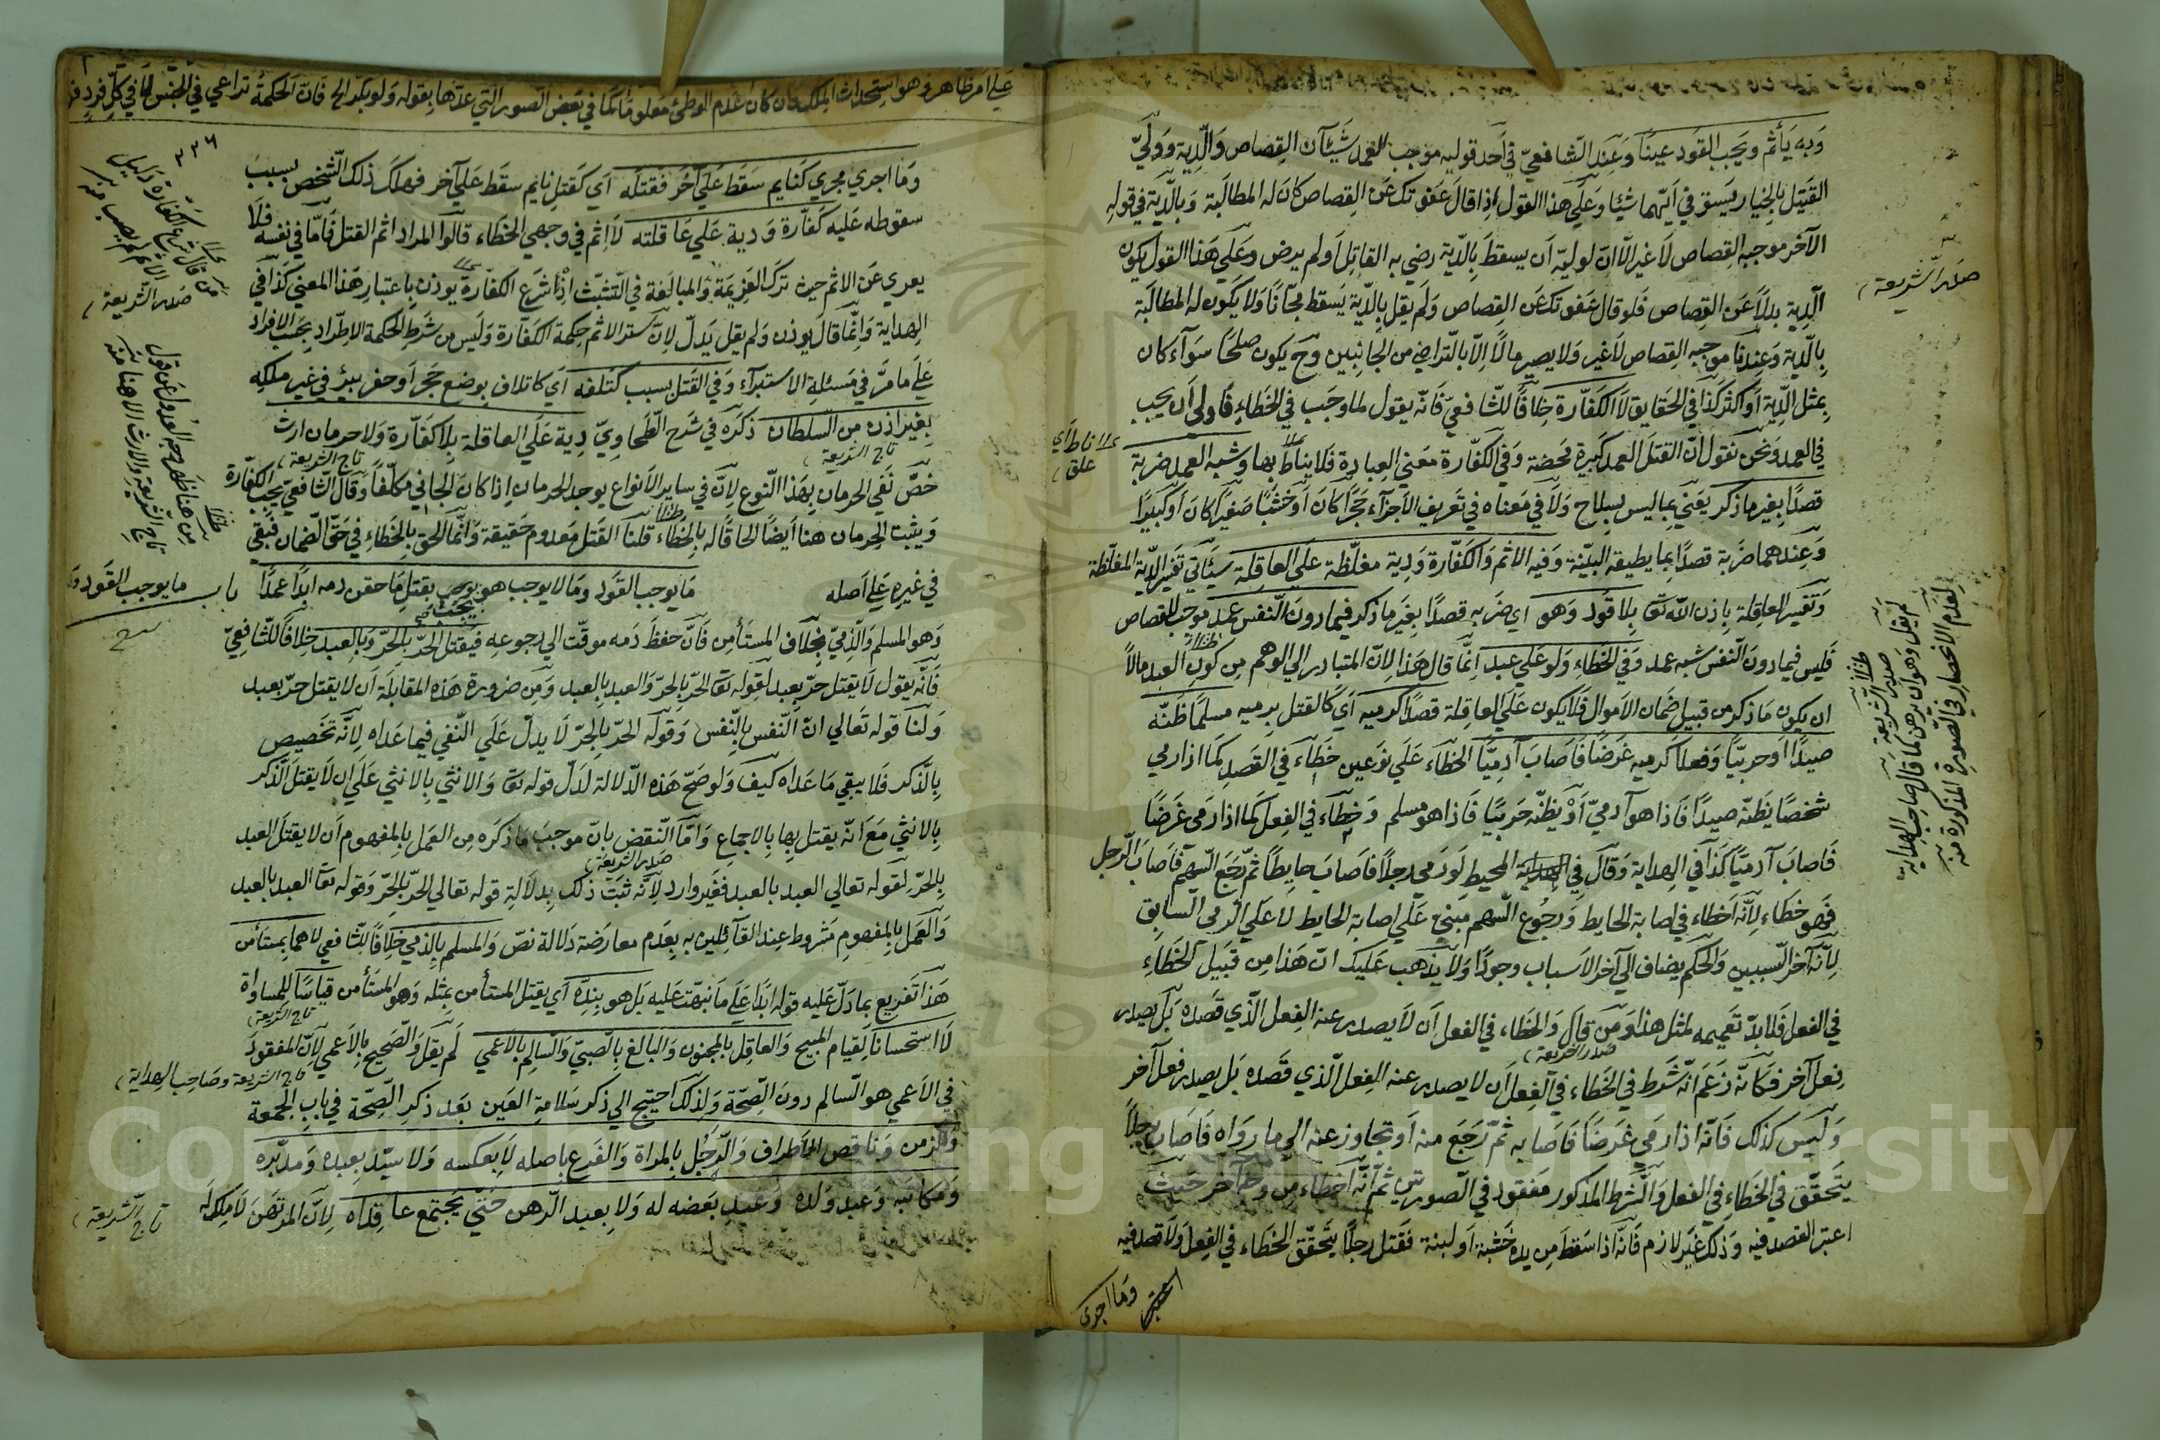 وَبه يَأثم ويَجب القَود عينًا وَعِند الشّافعيّ في اَحد قوليه موجب العمد شَيئآن القِصاص وَالدِّية وَوَليّ
القَتِيل بالخِيار يَستوفي اَيّهما شيئا وعَلَي هذا القول اِذا قالَ عَفوتك عَن القِصاص كانَ له المطالَبة وَبالدّية في قوله
الآخر موجبه القصاص لاَغير الاّ انّ لوليّه اَن يسقطَ بِالدّية رضي به القاتِل اَو لم يرض وعَلَي هَذا القول يكون
الدّية بدلاً عَن القِصاص فلو قال عَفوتك عَن القِصاص ولَم يقل بِالدّية يَسقط مجّانًا وَلا يَكون له المطالَبَة
بالدّية وَعِندنا موجبه القِصاص لاَغير وَلا يصير مالاً اِلاّ بالتراضي من الجانِبين وح يكون صلحًا سَوآء كان
بِمثل الدّية اَو اكثر كَذا في الحَقايق لاَ الكَفّارة خِلافًا للشّافعيّ فَانّه يقول لما وجَب في الخَطاء فَاَولى اَن يجب
في العمد وَنحن نقول اَنّ القتلَ العمد كَبيرة محَضة وَفي الكَفّارة مَعني العِبادة فلا يناط بها وشبه العمد ضربة
قصدًا بِغير ما ذكر يَعني بماليس بِسلاح وَلا في مَعناه في تَفريق الاَجزاء حَجرًا كانَ اَو خشَبًا صَغيرًا كان اَو كبيرًا
وَعِندهما ضَربة قصدًا بما يطيقه البنية وَفيه الاثم وَالكَفّارة وَدِية مغلّظة علَى العاقلة سيَاتي تَفسير الدّية المغلّظة
وَتفسير العاقِلة بِاِذن الله تعَا بِلا قَود وَهو اي ضَربه قصدًا بِغَير ما ذكر فيما دونَ النّفس عمد موجب للقصاص
فَليس فيما دونَ النّفس شبه عمد وَفي الخَطاء وَلو علي عبد اِنّما قال هَذا لاَنّ المتبادر الي الوهم مِن كون العبد مالاً
ان يكون ما ذكر من قبيل ضَمان الاَموال فلاَ يكون علَي العاقِلة قصدًا كرميه اَي كَالقتل برميه مسلمًا ظنّه
صيدًا اَو حربيّا وَفعلاً كرميه غَرضًا فَاَصابَ آدميّا الخَطاء عَلَي نوَعين خَطاء في القَصد كما اذا رمي
شخصًا يظنّه صيدًا فاَذا هو آدميّ اَوْ يَظنّه حَربيّا فَاذا هو مسلم وَخطاء في الفِعل كما اذا رَمى غَرضًا
فَاصابَ آدميّا كَذا في الهِداية وَقالَ في المحيط لَو رَمي رجلاً فاصَابَ حايطًا ثمّ رجَع السّهم فاَصابَ الرّجل
فَهو خطَاء لاَنّه اَخطاء في اِصابة الحايط وَرجُوع السّهم مَبنيّ عَلي اصابة الحايط لا علَي الرّمى السّابق
لاَنّه آخر السّببين وَالحكم يضاف الي آخر الاَسباب وجودًا وَلا يذهب عَليك انّ هَذا مِن قبيل الخَطاء
في الفعل فلا بدّ تعَميمه لمثل هذا وَمَن قال وَالخطاء في الفعل اَن لاَ يصدر عنه الفِعل الّذي قَصَده بَل يصدر
فِعل آخر فكَانّه زَعَم انّه شَرط في الخَطاء في الفِعل اَن لا يصدر عنه الفِعل الّذي قَصده بَل يصدر فعل آخر
وَليَس كذلك فَانّه اذا رمي غرَضًا فاَصَابه ثمّ رَجَعَ منه اَو تجاوز عنه الي ما رَواه فَاصابَ رجلاً
يتحَقّق في الخَطاء في الفعل وَالشّرط المذكور مَفقود في الصّورتين ثمّ انّه اَخطاء مِن وجه آخر حَيث
اعتبر القصد فيه وَذلك غَير لازم فَانّه اذا سَقطَ مِن يده خَشبة اَو لبنة فقَتل رجلاً يتحَقّق الخطاء في الفِعل وَلا قصد فيه
وَما اجرى
صدر الشريعة
لا ناط اَي
علق
لم يقل وَهو ان يرمي كما قال صاحب الهداية
لعدم الانحصار في الصّورة المذكورة منه
صدر الشريعة
علي امر ظاهر وهو استحداث الملك وَان كان عَدم الوطئ معلومًا كما في بَعض الصّور التي عدّها بِقوله ولو بكرا الخ فانّ الحكمة تراعي في الجنس لا في كلّ فرد
٣٣٦
وَما اجري مجري كنايم سَقط علَي آخُر فقتله اَي كَقتلِ نايم سقط علَي آخر فهلكَ ذلك الشّخص بسبب
سقوطه عَليه كفّارة وَدية علَي عاقلته لاَ اِثم في وجهي الخَطاء قالوا المراد اثم القتل فَامّا في نفسه فلَا
يعري عَن الاثم حيث ترَك العَزيمَة وَالمبالغة في التثبّت اِذْ شرَع الكفّارة يوذن باعتبار هَذا المعني كَذا في
الهِداية وَانّما قال يوذن وَلم يقل يَدلّ لانّ ستر الاثم حِكمة الكفّارة وَليَس من شَرط الحكمة الاِطّراد بِحَسب الافراد
علَي ما مَرّ في مَسئلة الاستبرآء وَفي القتل بسبب كتلفه اَي كاتلاف بوضع حَجر اَو حفر بيئر في غير ملكه
بِغير اذن من السّلطان ذكَرَه في شَرح الطّحاويّ دِية علَي العاقلة بِلا كَفّارة وَلا حرمان ارث
خصّ نَفي الحرمان بِهَذا النّوع لاَنّ في ساير الاَنواع يوجد الحرمان اِذا كانَ الجاني مكلّفًا وَقالَ الشّافعيّ يجب الكفّارة
وَيثبت الحِرمان هنا اَيضًا الحاقًا له بالخَطاء قلنا القَتل مَعدوم حَقيقة وَانّما الحِق بِالخَطاء في حَقّ الضّمان فبَقي
في غيره علَي اَصله باب ما يوجب القَود وَما لا يوجب هو يجب بِقتل ما حقن دمه ابدًا عمدًا
وَهو المسلم وَالذّميّ بخلاف المستَأمن فَانّ حفظَ دَمه موقّت الي رجوعه فيقتل الحرّ بالحرّ وَبالعبد خِلافًا للشّافعيّ
فَانّه يقول لاَ يقتل حرّ بعبد لقوله تعَا الحرّ بالحرّ وَالعبد بالعبد وَمِن ضرورة هَذه المقابَلَة اَن لا يقتل حرّ بعبد
وَلنا قوله تعَالي انّ النّفس بِالنّفس وَقوله الحرّ بِالحرّ لاَ يدلّ علَي النّفي فيما عداه لاِنّه تخَصيص
بِالذّكر فلا يبقي ما عداه كَيف وَلو صَحّ هَذه الدّلالة لَدلّ قوله تعَا وَالانثي بِالانثي علَي ان لاَ يقتل الذّكر
بِالانثي مَعَ اَنّه يقتل بِها بِالاجماع وَامّا النّقض بِانّ موجبَ ما ذكَره مِن العَمل بِالمفهوم اَن لا يقتل العبد
بِالحرّ لقوله تعالي العبد بالعبد فغَير وارد لاَنّه ثبتَ ذلك بِدلالة قوله تعالي الحرّ بالحرّ وَقوله تعَا العبد بالعبد
وَالعَمل بِالمفهوم مَشروط عند القآئِلين به بِعَدم معارضَة دَلالة نصّ وَالمسلم بِالذّمي خِلافًا للشّافعي لا هما بِمستَأمن
هَذا تَفريع بما دلّ عَليه قوله ابدًا علَي ما نبّهت عَليه بَل هو بِنِدّه اَي يقتل المستأمن بِمثله وَهو المستَأمن قياسًا للمساواة
لاَ استحسانًا لقيام المبيح وَالعاقِل بِالمجنون وَالبالغ بِالصّبيّ وَالسّالِم بِالاَعمي لَم يقل وَالصّحيح بِالاَعمي لاَنّ المفقود
في الاَعمي هو السّالم دون الصّحّة وَلذلك احتيج الي ذكر سَلامة العَين بَعد ذكر الصّحّة في باب الجمعة
وَالزّمن وَناقص الاَطراف وَالرّجُل بِالمراة وَالفَرع باصله لاَ بِعكسه وَلا سيّد بِعبده وَمدبّره
وَمكاتبه وَعبد وَلده وَعبد بَعضه له وَلا بِعبد الرّهن حَتّي يَجتمع عاقِداه لاَنّ المرتَهن لاَ ملك له
تاج الشريعة
صدر الشريعة
تاج الشريعة وصاحب الهداية
باب ما يوجب القود
Copyright © King Saud University